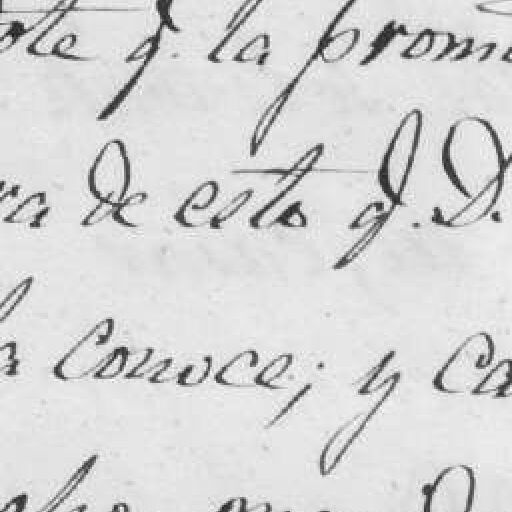 ote q. la prom
ra de esto q. D.
la Conoce; y Ca